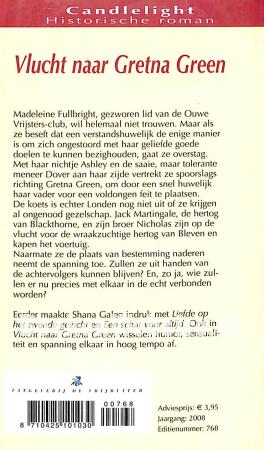 Candlelight
Historische roman
Vlucht naar Gretna Green
Madeleine Fullbright, gezworen lid van de Ouwe
Vrijsters-club, wil helemaal niet trouwen. Maar als
ze beseft dat een verstandshuwelijk de enige manier
is om zich ongestoord met haar geliefde goede
doelen te kunnen bezighouden, gaat ze overstag.
Met haar nichtje Ashley en de saaie, maar tolerante
meneer Dover aan haar zijde vertrekt ze spoorslags
richting Gretna Green, om door een snel huwelijk
haar vader voor een voldongen feit te plaatsen.
De koets is echter Londen nog niet uit of ze krijgen
al ongenood gezelschap. Jack Martingale, de hertog
van Blackthorne, en zijn broer Nicholas zijn op
de vlucht voor de wraakzuchtige hertog van Bleven en
kapen het voertuig.
Naarmate ze de plaats van bestemming naderen
neemt de spanning toe. Zullen ze uit handen van
de achtervolgers kunnen blijven? En, zo ja, wie zul-
len er nu precies met elkaar in de echt verbonden
worden?
Eerder maakte Shana Galen indruk met Liefde op
het tweede gezicht en Een schat voor altijd. Ook in
Vlucht naar Gretna Green wisselen humor, sensuali-
teit en spanning elkaar in hoog tempo af.
UITGEVERIJ DE VRIJBUITER
00768
8 710425 101030
Adviesprijs: € 3,95
Jaargang: 2008
Editienummer: 768